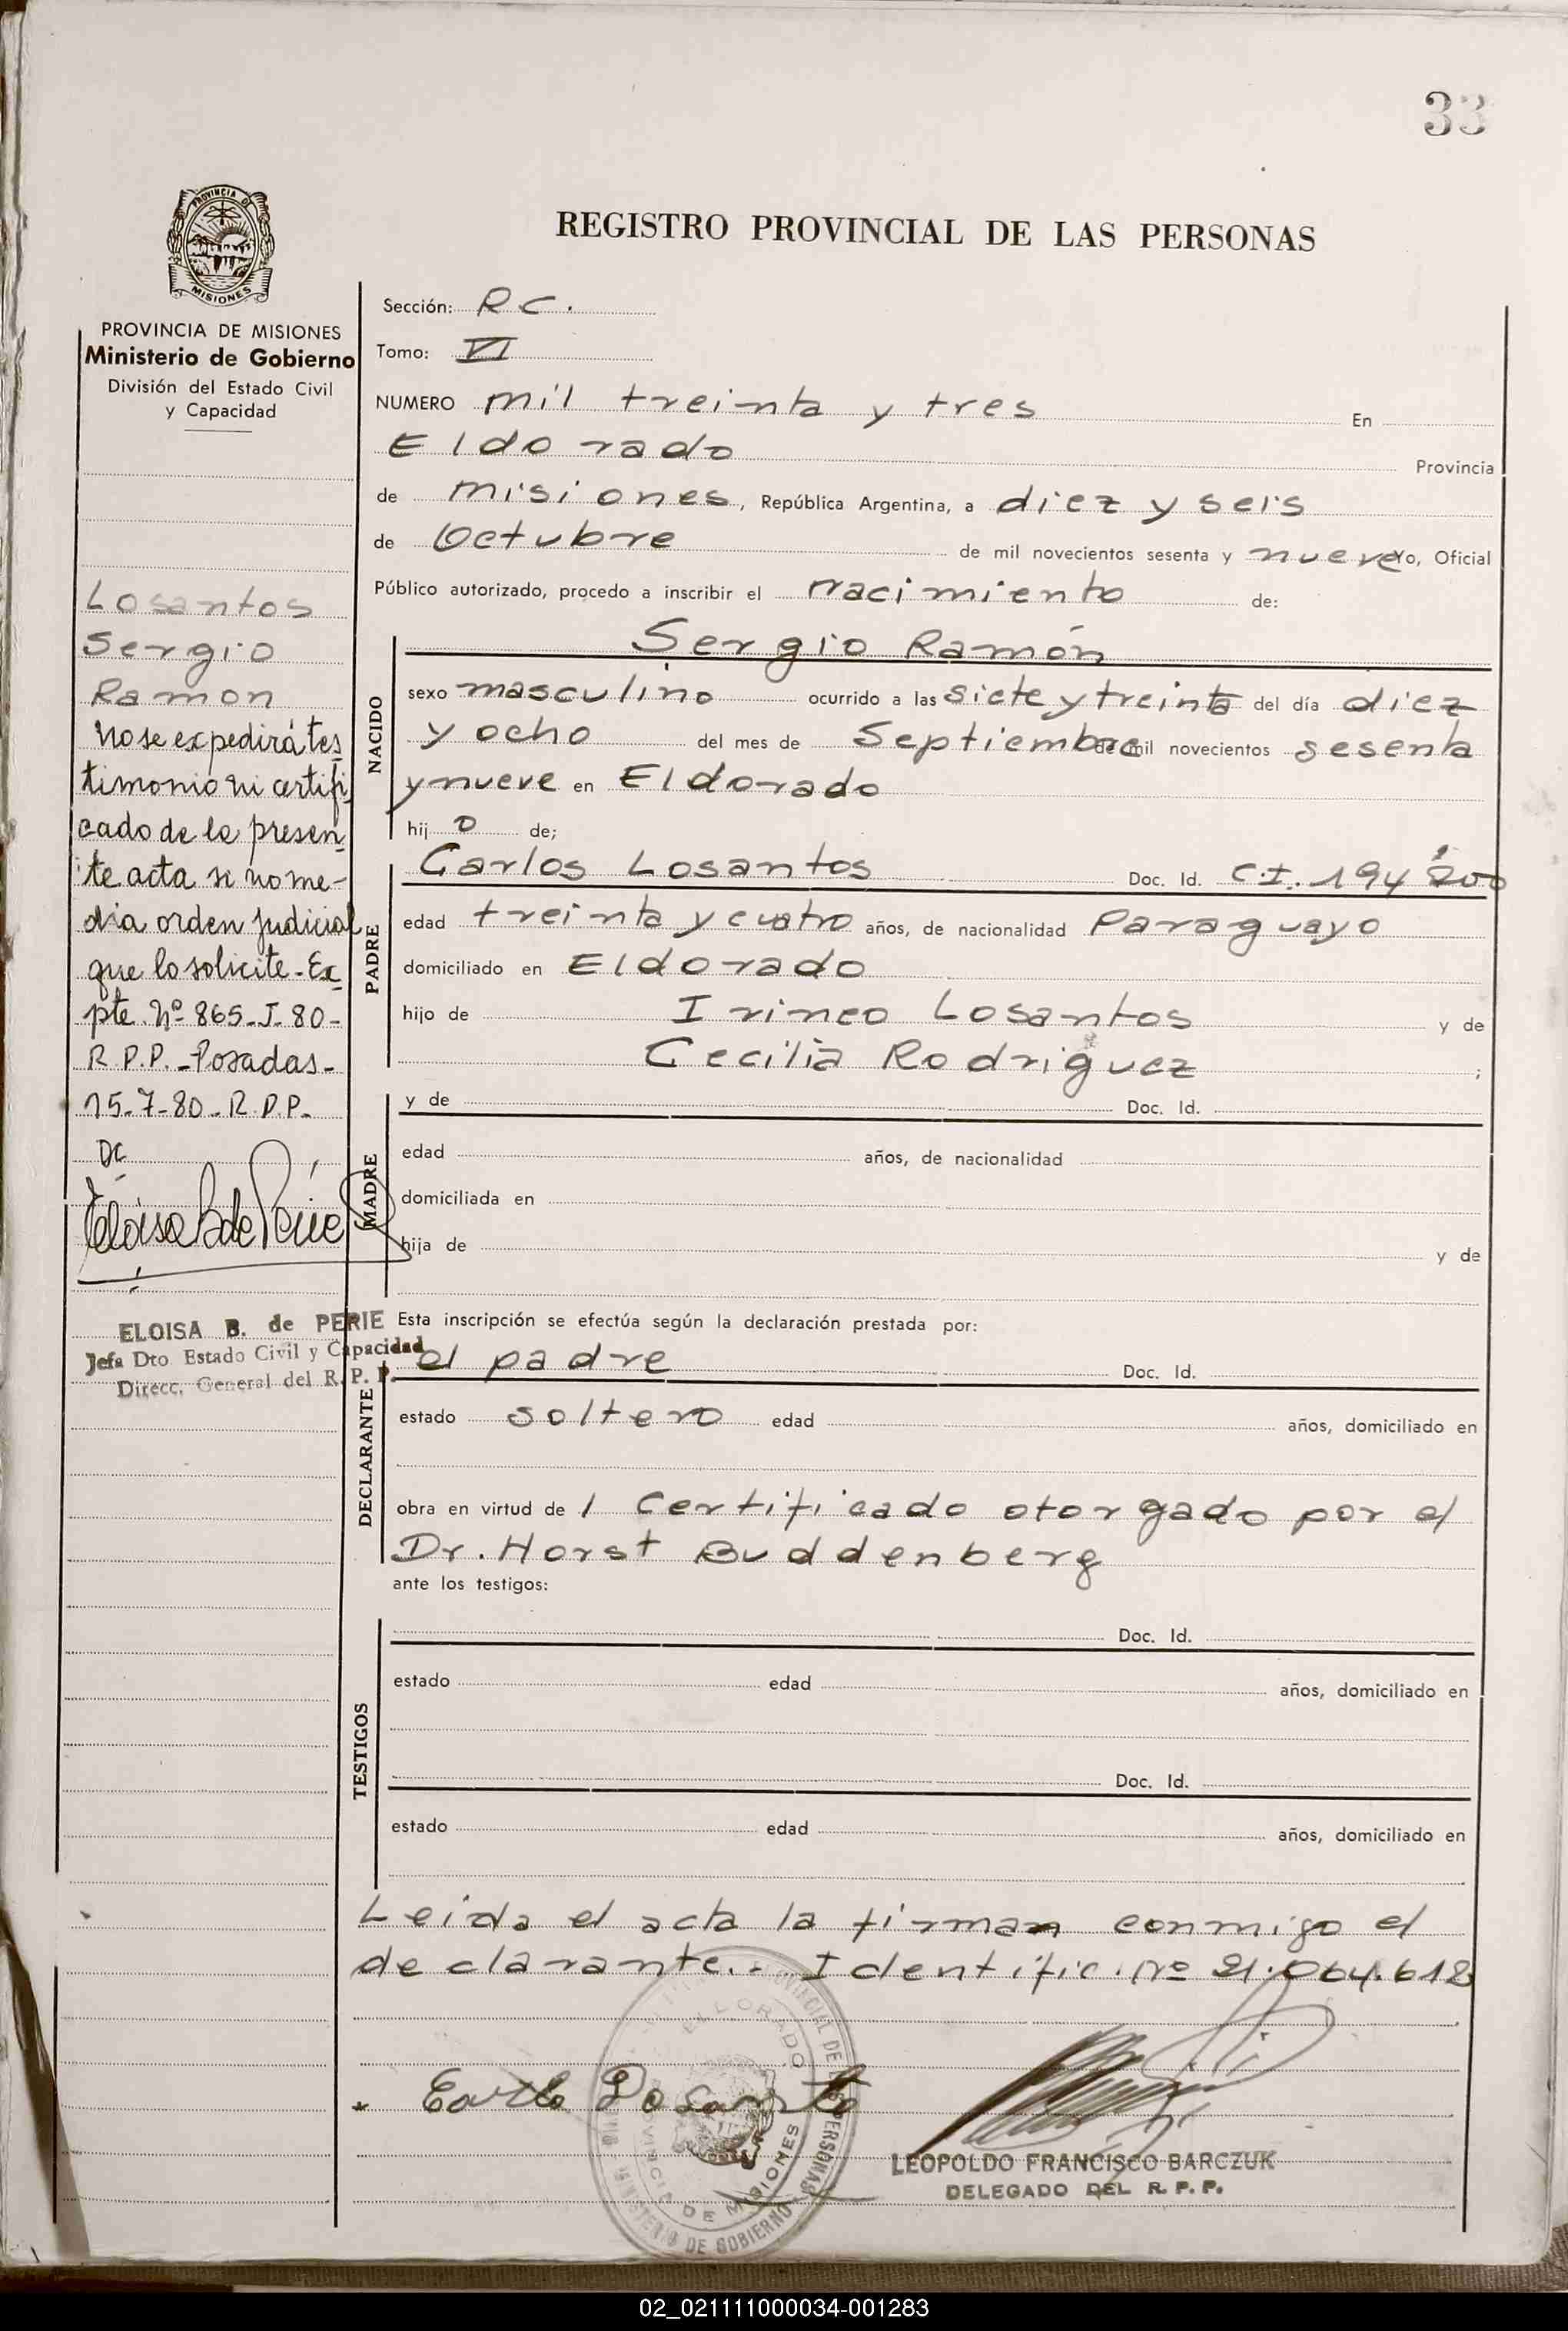 33
PROVINCIA DE
MISIONES
PROVINCIA DE MISIONES
Ministerio de Gobierno
División del Estado Civil
y Capacidad
Losantos
Sergio
Ramon
No se expedirá tes
timonio ni certifi
cado de la presen
te acta si no me-
dia orden judicial
que lo solicite - Ex
pte. Nº 865-J-80-
R.P.P. - Posadas -
15-7-80 - R.P.P.
DC
Eloisa B de Perie
ELOISA B. de PERIE
Jefa Dto. Estado Civil y Capacidad
Direcc. General del R. P. P.
REGISTRO PROVINCIAL DE LAS PERSONAS
Sección: R C.
Tomo: VI
NUMERO mil treinta y tres En
Eldorado Provincia
de misiones, República Argentina, a diez y seis
de Octubre de mil novecientos sesenta y nueve Yo, Oficial
Público autorizado, procedo a inscribir el nacimiento de:
Sergio Ramón
NACIDO
sexo masculino ocurrido a las siete y treinta del día diez
y ocho del mes de Septiembre de mil novecientos sesenta
y nueve en Eldorado
hij o de;
PADRE
Carlos Losantos Doc. Id. C.I. 194.200
edad treinta y cuatro años, de nacionalidad Paraguayo
domiciliado en Eldorado
hijo de Irineo Losantos y de
Cecilia Rodriguez ;
MADRE
y de Doc. Id.
edad años, de nacionalidad
domiciliada en
hija de y de
Esta inscripción se efectúa según la declaración prestada por:
DECLARANTE
el padre Doc. Id.
estado soltero edad años, domiciliado en
obra en virtud de 1 Certificado otorgado por el
Dr. Horst Buddenberg
ante los testigos:
TESTIGOS
Doc. Id.
estado edad años, domiciliado en
Doc. Id.
estado edad años, domiciliado en
Leida el acta la firman conmigo el
declarante.- Identific. Nº 21.064.618
ELDORADO
PROVINCIA DE MISIONES
MINISTERIO DE GOBIERNO
PROVINCIAL DE LAS PERSONAS
LEOPOLDO FRANCISCO BARCZUK
DELEGADO DEL R. P. P.
02_021111000034-001283